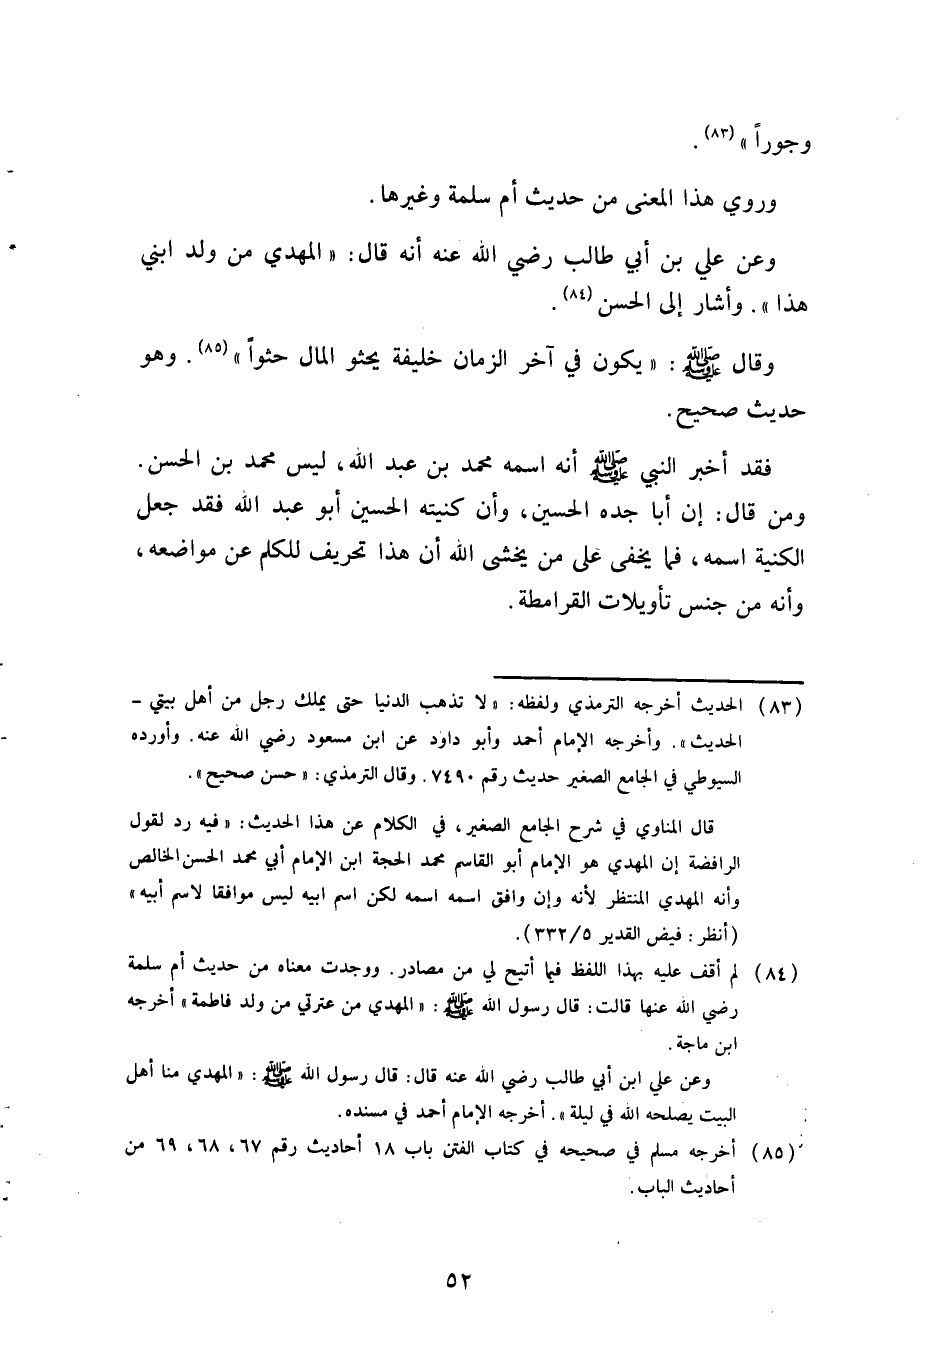 وجوراً » (٨٣) .
وروي هذا المعنى من حديث أم سلمة وغيرها .
وعن علي بن أبي طالب رضي الله عنه أنه قال : « المهدي من ولد ابني
هذا » . وأشار إلى الحسن (٨٤) .
وقال ﷺ : « يكون في آخر الزمان خليفة يحثو المال حثواً » (٨٥) . وهو
حديث صحيح .
فقد أخبر النبي ﷺ أنه اسمه محمد بن عبد الله ، ليس محمد بن الحسن .
ومن قال : إن أبا جده الحسين ، وأن كنيته الحسين أبو عبد الله فقد جعل
الكنية اسمه ، فما يخفى على من يخشى الله أن هذا تحريف للكلم عن مواضعه ،
وأنه من جنس تأويلات القرامطة .
(٨٣) الحديث أخرجه الترمذي ولفظه : « لا تذهب الدنيا حتى يملك رجل من أهل بيتي –
الحديث » . وأخرجه الإمام أحمد وأبو داود عن ابن مسعود رضي الله عنه . وأورده
السيوطي في الجامع الصغير حديث رقم ٧٤٩٠ . وقال الترمذي : « حسن صحيح » .
قال المناوي في شرح الجامع الصغير ، في الكلام عن هذا الحديث : « فيه رد لقول
الرافضة إن المهدي هو الإمام أبو القاسم محمد الحجة ابن الإمام أبي محمد الحسن الخالص
وأنه المهدي المنتظر لأنه وإن وافق اسمه اسمه لكن اسم ابيه ليس موافقا لاسم أبيه »
(أنظر : فيض القدير ٣٣٢/٥) .
(٨٤) لم أقف عليه بهذا اللفظ فيما أتيح لي من مصادر . ووجدت معناه من حديث أم سلمة
رضي الله عنها قالت : قال رسول الله ﷺ : « المهدي من عترتي من ولد فاطمة » أخرجه
ابن ماجة .
وعن علي ابن أبي طالب رضي الله عنه قال : قال رسول الله ﷺ : « المهدي منا أهل
البيت يصلحه الله في ليلة » . أخرجه الإمام أحمد في مسنده .
(٨٥) أخرجه مسلم في صحيحه في كتاب الفتن باب ١٨ أحاديث رقم ٦٧ ، ٦٨ ، ٦٩ من
أحاديث الباب .
٥٢